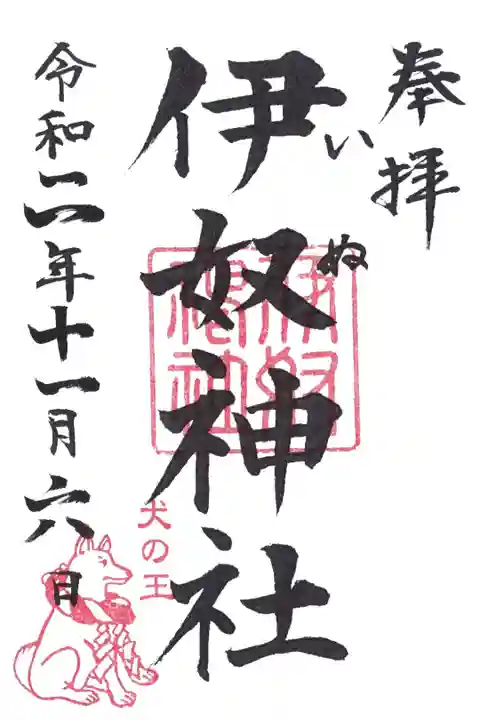 奉拝
伊奴神社
いぬ
伊奴神社
犬の王
令和二年十一月六日